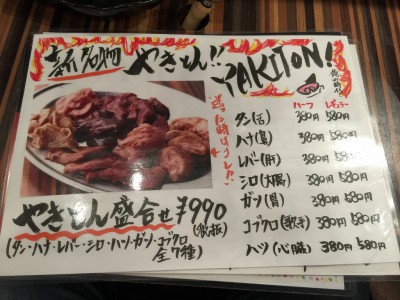 新名物 やきとん!!
YAKITON!
迷った時はコレ!!
ハーフ レギュラー
タン(舌) 380円 580円
ハナ(鼻) 380円 580円
レバー(肝) 380円 580円
シロ(大腸) 380円 580円
ガツ(胃) 380円 580円
コブクロ(子宮) 380円 580円
ハツ(心臓) 380円 580円
やきとん盛合せ ¥990
(税抜)
(タン・ハナ・レバー・シロ・ハツ・ガツ・コブクロ
全7種)